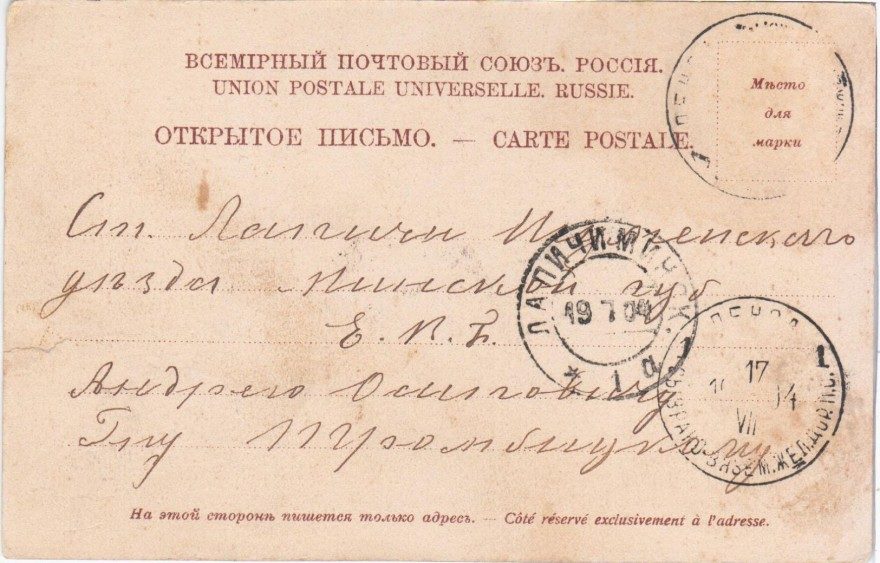 ВСЕМІРНЫЙ ПОЧТОВЫЙ СОЮЗЪ. РОССІЯ.
UNION POSTALE UNIVERSELLE. RUSSIE.
ОТКРЫТОЕ ПИСЬМО. — CARTE POSTALE.
Мѣсто
для
марки
Ст. Лапичи Игуменскаго
уѣзда Минской губ
Е. В. Б.
Андрею Осиповичу
Гну Тромбицкому
ЛАПИЧИ МИНСК.
19 7 04
1 а
1 1
17
VII
ВЯЗЕМ. ЖЕЛ. ДОР.
На этой сторонѣ пишется только адресъ. — Côté réservé exclusivement à l'adresse.